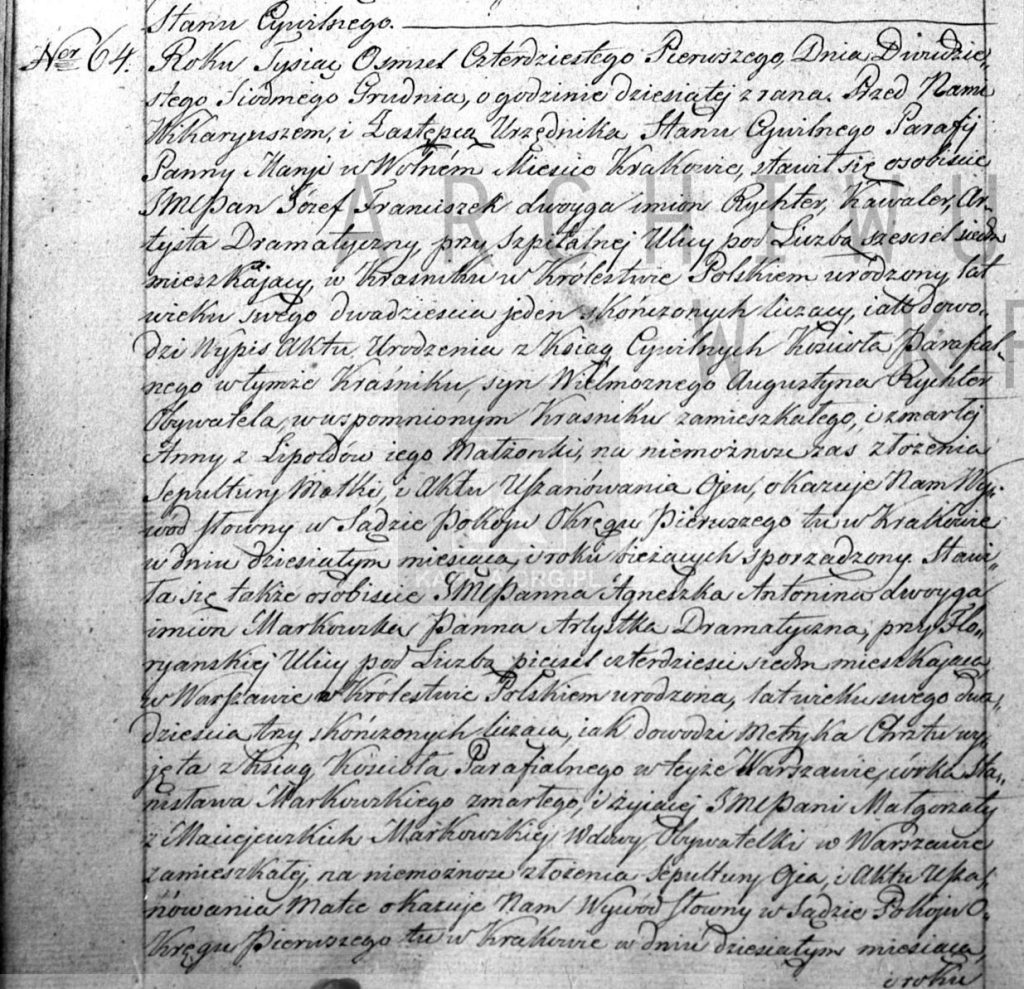 Stanu Cywilnego.
Ner 64. Roku Tysiąc Osmset Czterdziestego Pierwszego, Dnia Dwudzie-
stego Siodmego Grudnia, o godzinie dziesiątej z rana. Przed Nami
Wikaryuszem, i Zastępcą Urzędnika Stanu Cywilnego Parafij
Panny Maryi w Wolném Mieście Krakowie, stawił się osobiście
JMPan Józef Franciszek dwoyga imion Rychter, Kawaler, Ar-
tysta Dramatyczny, przy Szpitalnej Ulicy pod Liczbą szescset siedm
mieszkający, w Kraśniku w Królestwie Polskiem urodzony, lat
wieku swego dwadziescia jeden skończonych liczący, iako dowo-
dzi Wypis Aktu Urodzenia z Ksiąg Cywilnych Kościoła Parafial-
nego w tymże Kraśniku, syn Wielmożnego Augustyna Rychter
Obywatela, w wspomnionym Krasniku zamieszkałego, i zmarłej
Anny z Lipoldów iego Małżonki, na niemożnosc zas złożenia
Sepultury Matki, i Aktu Uszanówania Ojca, okazuje Nam Wy-
wod słowny w Sądzie Pokoju Okręgu Pierwszego tu w Krakowie
w dniu dziesiątym miesiąca, i roku bieżących sporządzony. Stawi-
ła się także osobiscie JMPanna Agneszka Antonina dwoyga
imion Markowska, Panna Artystka Dramatyczna, przy Flo-
ryanskiej Ulicy pod Liczbą piecset czterdziesci siedm mieszkająca,
w Warszawie w Królestwie Polskiem urodzona, lat wieku swego dwa-
dziescia trzy skończonych licząca, iak dowodzi Metryka Chrztu wy-
jęta z Ksiąg Kościoła Parafialnego w teyże Warszawie, córka Sta-
nisława Markowskiego zmarłego, i żyjącej JMPani Małgorzaty
z Maciejewskich Markowskiej Wdowy Obywatelki w Warszawie
zamieszkałej, na niemożnosc złożenia Sepultury Ojca, i Aktu Usza-
nówania Matce okazuje Nam Wywod słowny w Sądzie Pokoju O-
Kręgu Pierwszego tu w Krakowie w dniu dziesiątym miesiąca,
i roku
ARCHIWU
W KR
KA ORG.PL